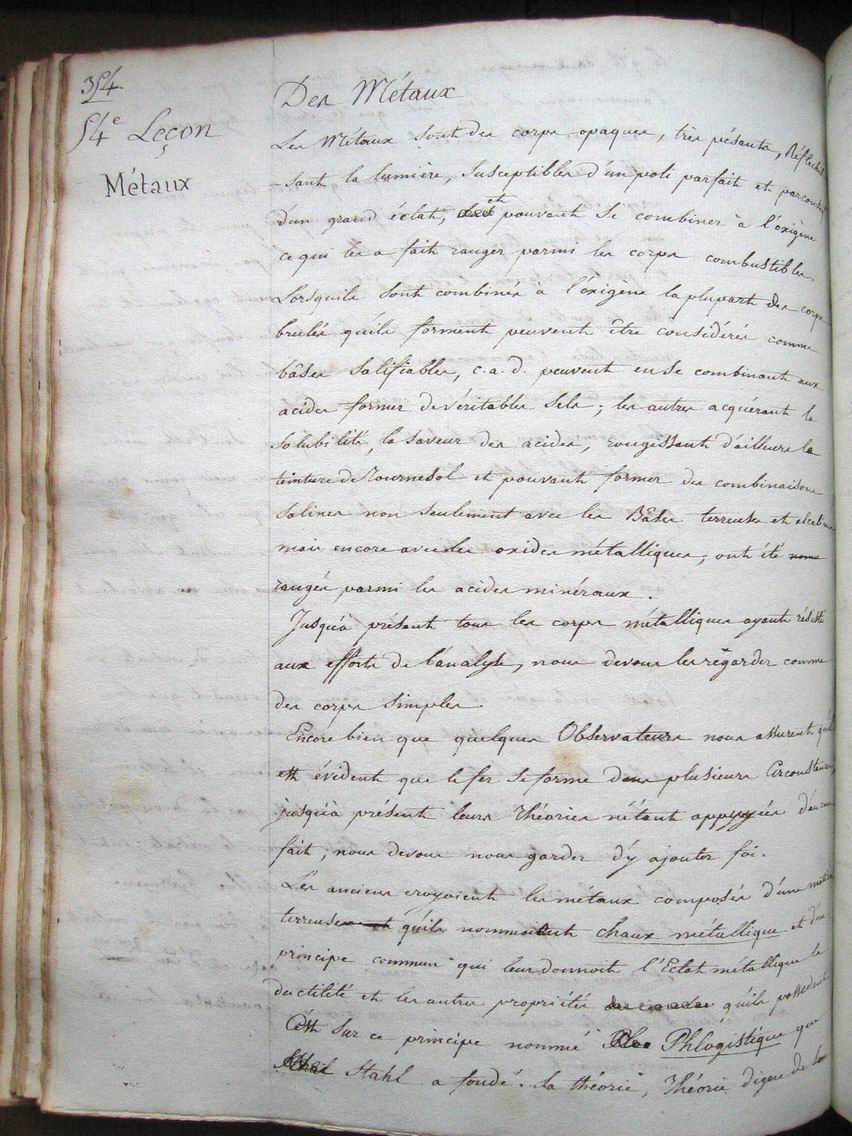 354.
54e Leçon
Métaux
Des Métaux
Les Métaux sont des corps opaques, très pésants, Réflechis
-sant la lumière, susceptibles d'un poli parfait et par conséqt
d'un grand éclat, et pouvant se combiner à l'oxigène
ce qui les a fait ranger parmi les corps combustibles.
Lorsquils sont combinés à l'óxigène la plupart des corps
brulés qu'ils forment peuvent être considérés comme
bâses salifiables, c.a.d. peuvent en se combinant aux
acides former de véritables sels; les autres acquérant la
solubilité, la saveur des acides, rougissant d'ailleurs la
teinture de Tournesol et pouvant former des combinaisons
salines non seulement avec les Bâses terreuses et alcalines
mais encore avec les oxides métalliques, ont été
rangés parmi les acides minéraux.
Jusqu'à présent tous les corps métalliques ayant résisté
aux efforts de l'analyse, nous devons les regarder comme
des corps simples.
Encore bien que quelques Observateurs nous assurent qu'il
est évident que le fer se forme dans plusieurs Circonstances,
jusqu'à présent leurs Théories n'étant appuyées d'aucun
fait, nous devons nous garder d'y ajouter foi.
Les anciens croyoient les métaux composés d'une matière
terreuse qu'ils nommoient chaux métallique et d'un
principe commun qui leur donnoit l'Eclat métallique la
ductilité et les autres propriétés qu'ils possedent
C'est sur ce principe nommé Phlogistique que
Stahl a fondé sa théorie, Théorie digne de son